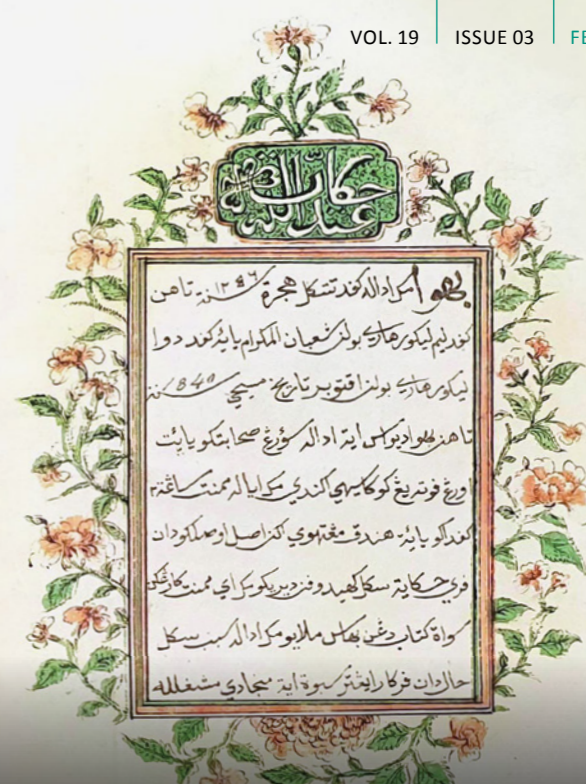 VOL. 19 ISSUE 03 FE
حكاية
عبد الله
بهوا مک اداله کفد تڠکل هجرة سنة ١٢٥٦ تاهن
کفد ليم ليکور هاري بولن شعبان المکرام يائة کفد دوا
ليکور هاري بولن اقتوبر تاريخ مسيحي سنة
تاهن بهوا ديواس اية اداله سؤرڠ صحابتکو يائت
اورڠ فوته يڠ کوکاسيهي اکندي مک اياله ممنت ساڠة٢
کفداکو يائة هندق مڠتهوي اکن اصل اوصلکو دان
فري حکاية سکل کهيدوفن ديريکو مک اي ممنت کارڠکن
سواة کتاب دڠن بهاس ملايو مک اداله سبب سکل
حال دان فرکارا يڠترسبوة اية منجادي مشغلله